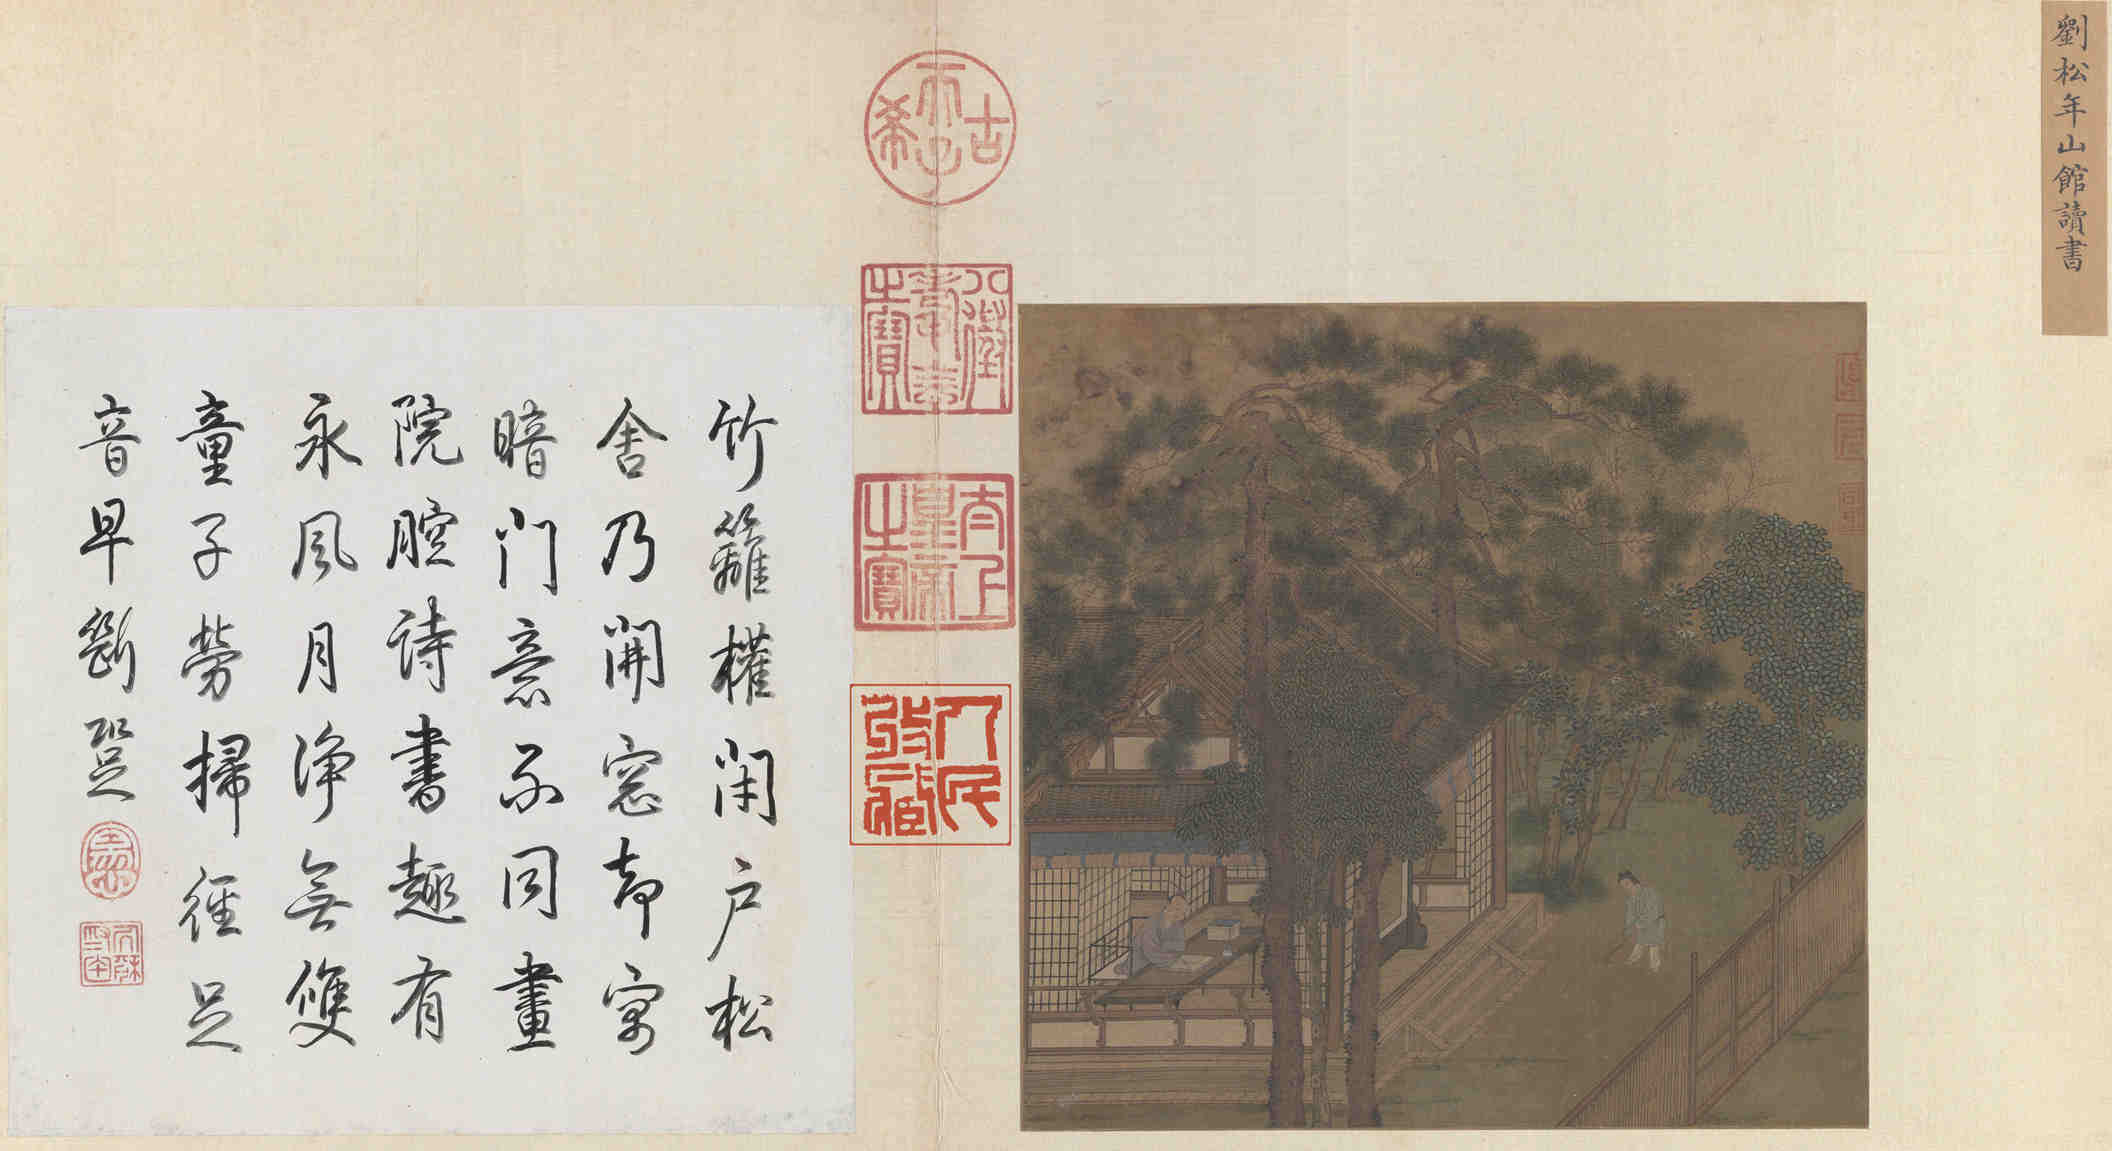 劉松年山館讀書
古希天子
八徵耄念之寶
太上皇帝之寶
人民收藏
竹籬權閉戶松
舍乃開窓却寓
暗門意不同畫
院腔詩書趣有
永風月淨無雙
童子勞掃徑足
音早斷跫